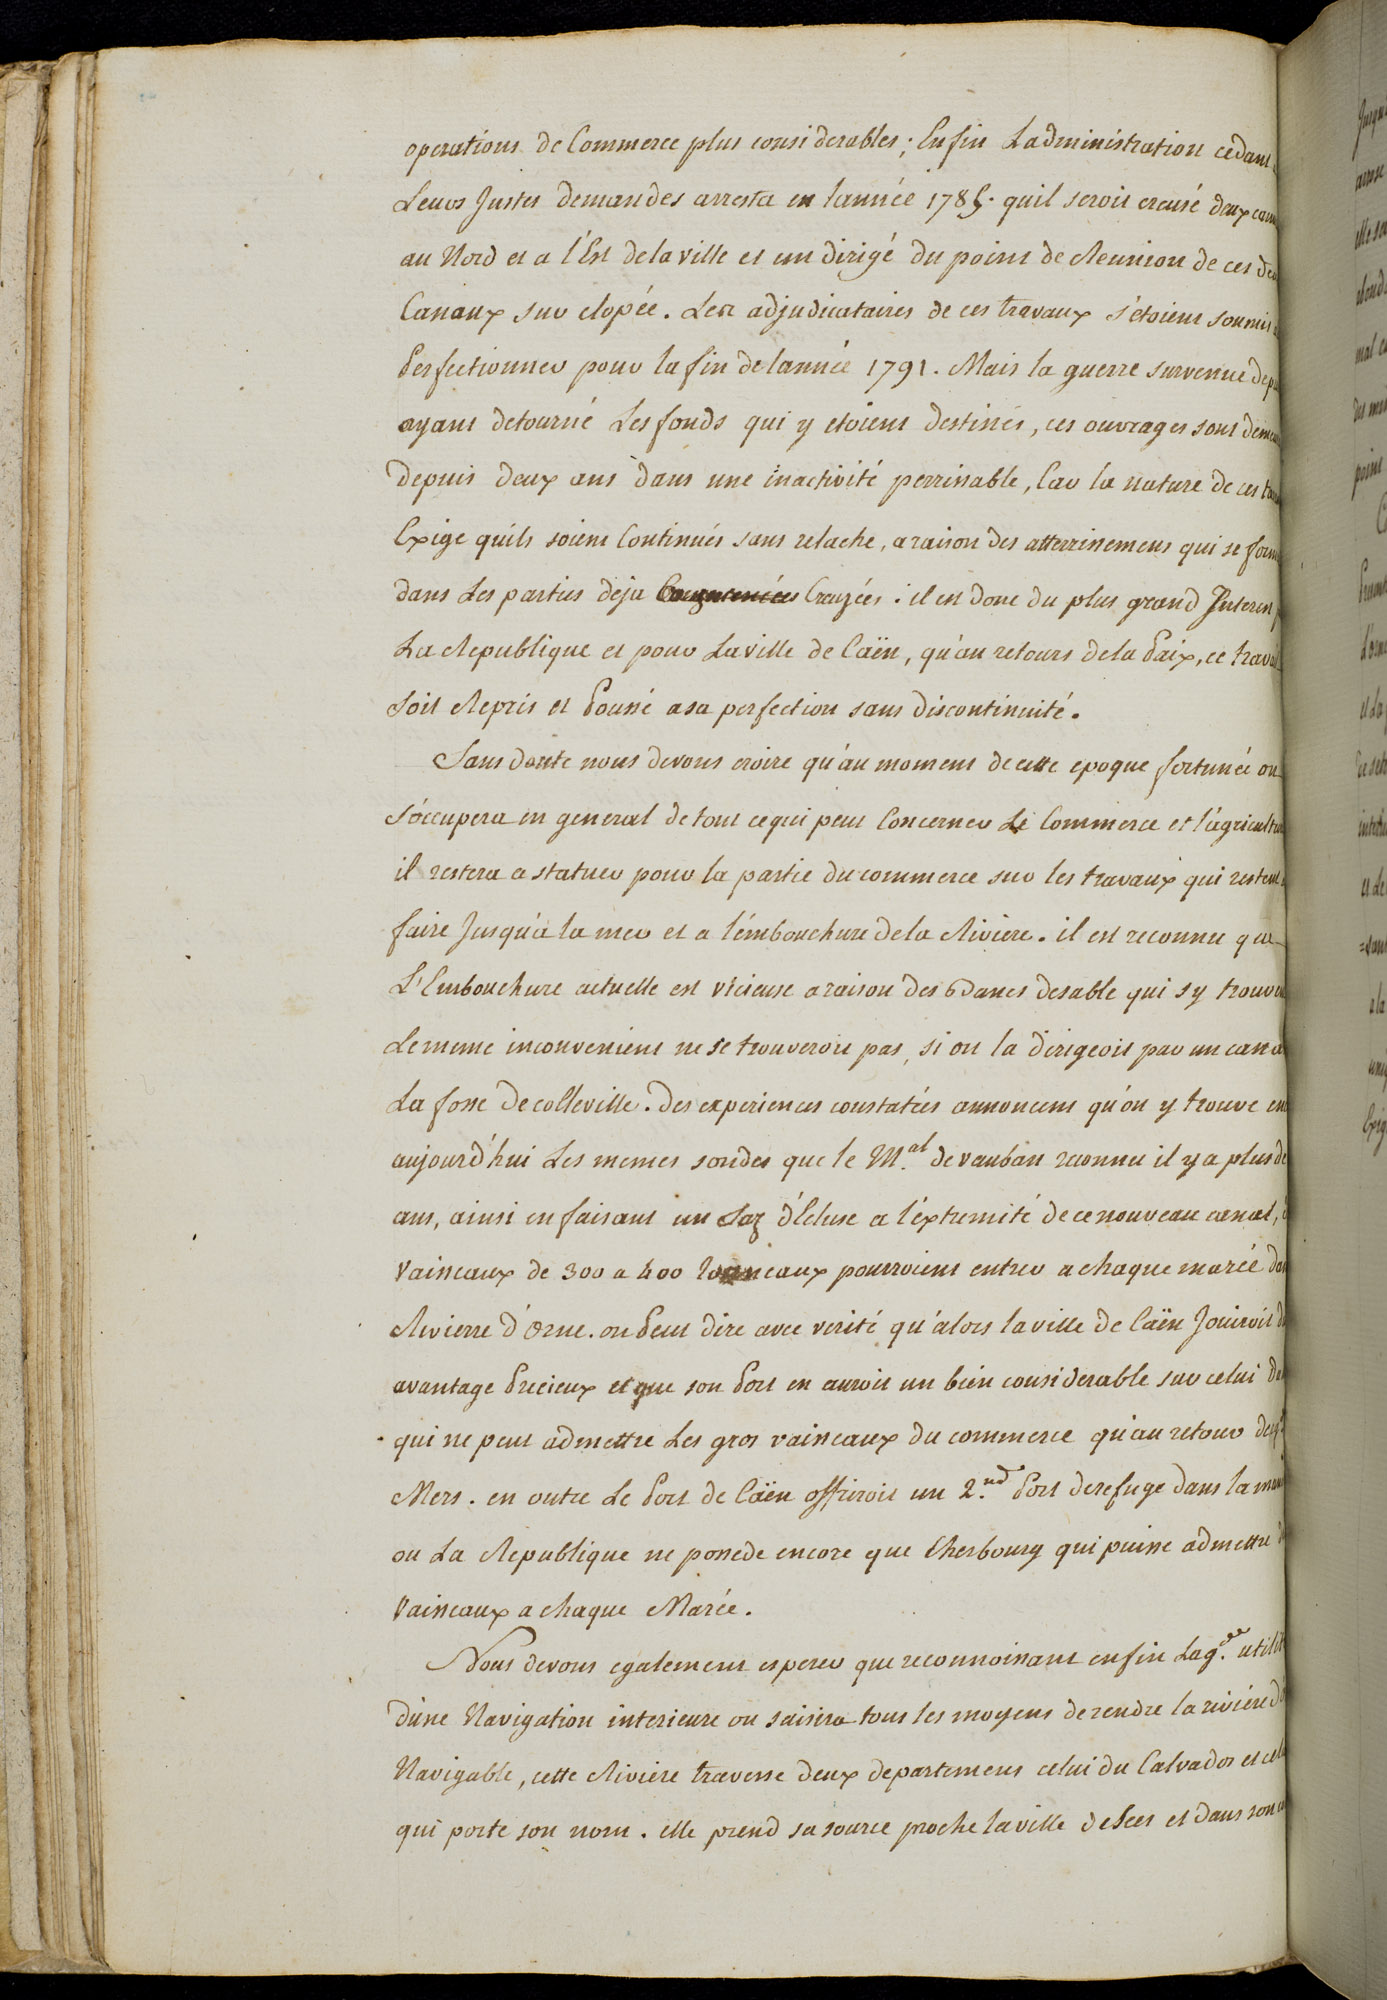 operations de Commerce plus considerables; Enfin Ladministration cedant
Leurs Justes demandes arresta en lannée 1785. quil seroit creusé deux
au Nord et a l'Est de la ville et un dirigé du point de Reunion de ces
Canaux sur clopée. Les adjudicataires de ces travaux s'étoient soumis
Perfectionner pour la fin de lannée 1791. Mais la guerre survenue
ayant detourné Les fonds qui y etoient destinés, ces ouvrages sont
depuis deux ans dans une inactivité perrissable, Car la nature de ces
Exige quils soient Continués sans relache, a raison des atterrissemens qui se
dans Les parties deja Creuzées. il est donc du plus grand Interest
La Republique et pour La ville de Caën, qu'au retours de la Paix, ce
soit Repris et Poussé a sa perfection sans discontinuité.
Sans doute nous devons croire qu'au moment de cette epoque fortunée on
s'occupera en general de tout ce qui peut Concerner Le Commerce et l'agricult
il restera a statuer pour la partie du commerce sur les travaux qui restent
faire Jusqu'a la mer et a l'émbouchure de la Riviere. il est reconnu que
L'Embouchure actuelle est vicieuse a raison des bancs de sable qui s y
Le meme inconvenient ne se trouveroit pas, si on la dirigeoit par un
La fosse de colleville. des experiences constatées annoncent qu'on y trouve
aujourd'hui Les memes sondes que le M.al de vauban reconnu il y a plus
ans, ainsi en faisant un Saz d'Ecluse a l'éxtremité de ce nouveau canal,
Vaisseaux de 300 a 400 tonneaux pourroient entrer a chaque marée
Rivierre d'Orne. on Peut dire avec verité qu'alors la ville de Caën Jouiroit
avantage Precieux et que son Port en auroit un bien considerable sur celui
qui ne peut admettre Les gros vaisseaux du commerce qu'au retour
Mers. en outre Le Port de Caën offriroit un 2.nd Port de refuge dans la
ou La Republique ne possede encore que Cherbourg qui puisse admettre
Vaisseaux a chaque Marée.
Nous devons egalement esperer que reconnoissant enfin La g.de
d'une Navigation interieure on saisira tous les moyens de rendre la rivière
Navigable, cette Riviere traverse deux departemens celui du Calvados et
qui porte son nom. elle prend sa source proche la ville de Sees et dans son